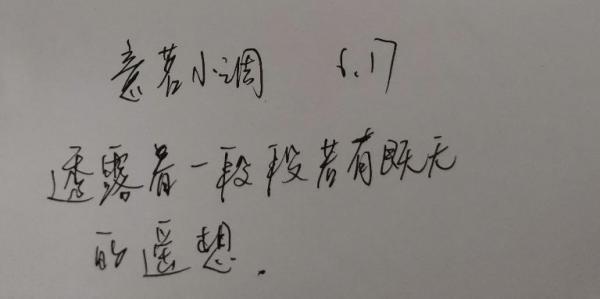 意若小调 6.17
透露着一段段若有既无
的遥想.